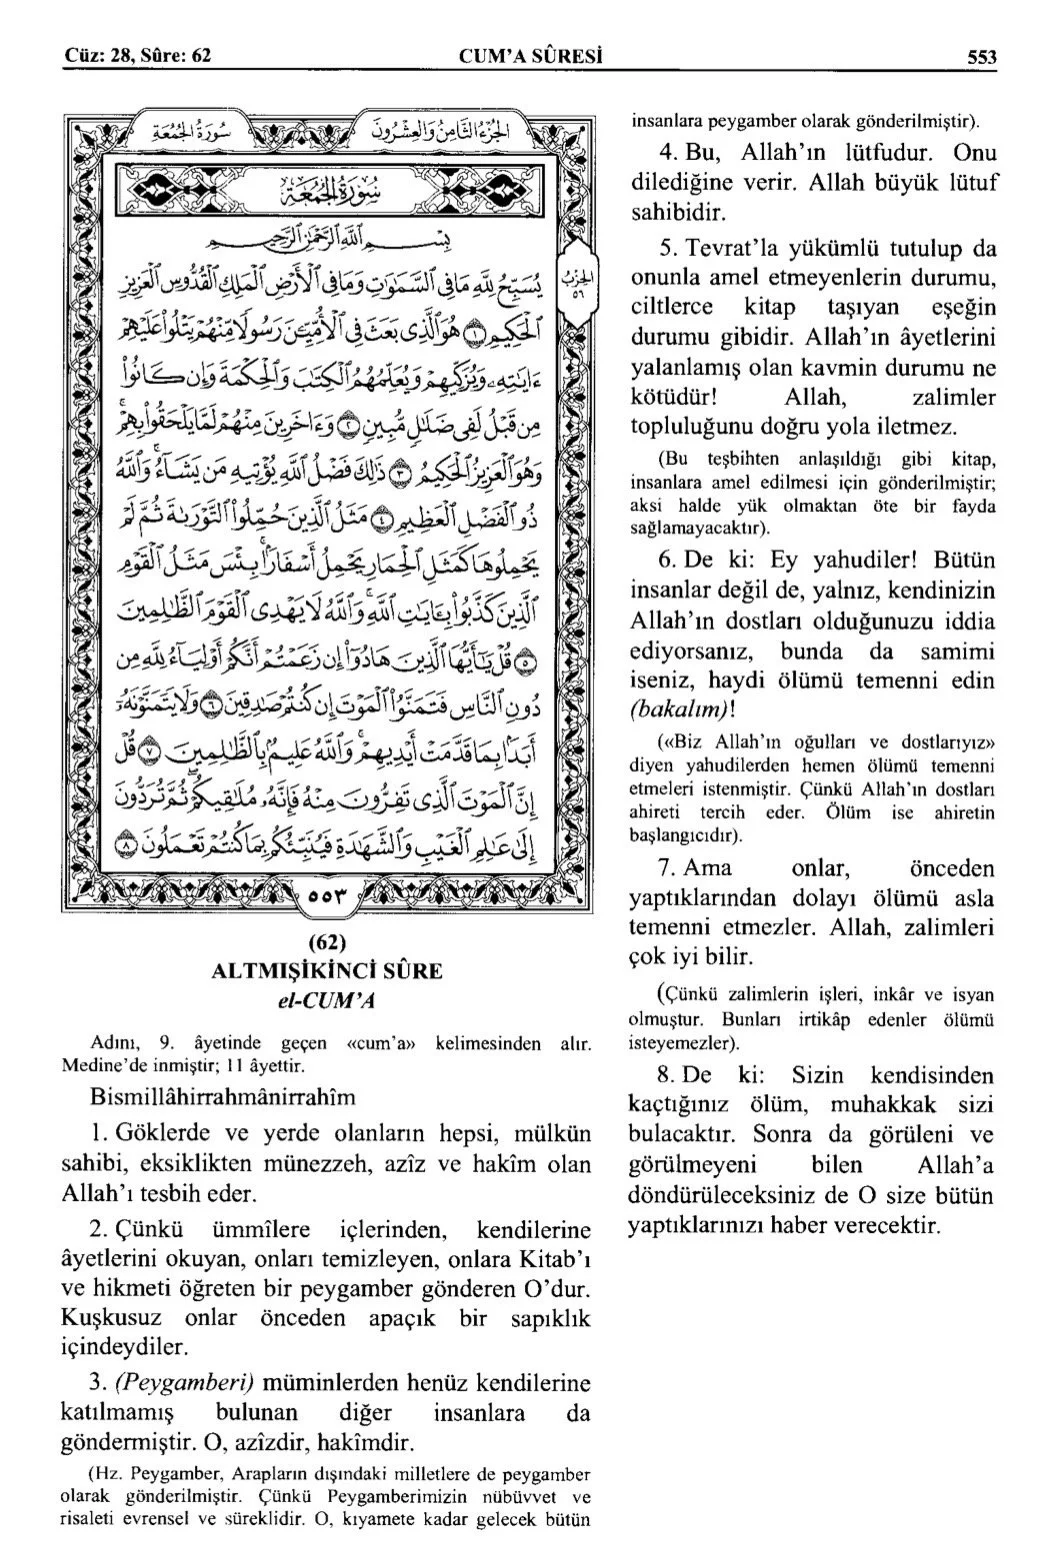 Cüz: 28, Sûre: 62 CUM’A SÛRESİ 553
سُورَةُ الجُمُعَةِ الجُزْءُ الثَّامِنُ وَالعِشْرُونَ
سُورَةُ الجُمُعَةِ
بِسْمِ اللَّهِ الرَّحْمَٰنِ الرَّحِيمِ
الحِزْبُ
٥٦
يُسَبِّحُ لِلَّهِ مَا فِي السَّمَٰوَٰتِ وَمَا فِي الْأَرْضِ الْمَلِكِ الْقُدُّوسِ الْعَزِيزِ
الْحَكِيمِ ١ هُوَ الَّذِي بَعَثَ فِي الْأُمِّيِّينَ رَسُولًا مِنْهُمْ يَتْلُوا عَلَيْهِمْ
ءَايَٰتِهِ وَيُزَكِّيهِمْ وَيُعَلِّمُهُمُ الْكِتَٰبَ وَالْحِكْمَةَ وَإِن كَانُوا
مِن قَبْلُ لَفِي ضَلَٰلٍ مُّبِينٍ ٢ وَءَاخَرِينَ مِنْهُمْ لَمَّا يَلْحَقُوا بِهِمْ
وَهُوَ الْعَزِيزُ الْحَكِيمُ ٣ ذَٰلِكَ فَضْلُ اللَّهِ يُؤْتِيهِ مَن يَشَاءُ وَاللَّهُ
ذُو الْفَضْلِ الْعَظِيمِ ٤ مَثَلُ الَّذِينَ حُمِّلُوا التَّوْرَىٰةَ ثُمَّ لَمْ
يَحْمِلُوهَا كَمَثَلِ الْحِمَارِ يَحْمِلُ أَسْفَارًا بِئْسَ مَثَلُ الْقَوْمِ
الَّذِينَ كَذَّبُوا بِـَٔايَٰتِ اللَّهِ وَاللَّهُ لَا يَهْدِي الْقَوْمَ الظَّٰلِمِينَ
٥ قُلْ يَٰٓأَيُّهَا الَّذِينَ هَادُوا إِن زَعَمْتُمْ أَنَّكُمْ أَوْلِيَاءُ لِلَّهِ مِن
دُونِ النَّاسِ فَتَمَنَّوُا الْمَوْتَ إِن كُنتُمْ صَٰدِقِينَ ٦ وَلَا يَتَمَنَّوْنَهُ
أَبَدًا بِمَا قَدَّمَتْ أَيْدِيهِمْ وَاللَّهُ عَلِيمٌ بِالظَّٰلِمِينَ ٧ قُلْ
إِنَّ الْمَوْتَ الَّذِي تَفِرُّونَ مِنْهُ فَإِنَّهُ مُلَٰقِيكُمْ ثُمَّ تُرَدُّونَ
إِلَىٰ عَٰلِمِ الْغَيْبِ وَالشَّهَٰدَةِ فَيُنَبِّئُكُم بِمَا كُنتُمْ تَعْمَلُونَ ٨
٥٥٣
(62)
ALTMIŞİKİNCİ SÛRE
el-CUM’A
Adını, 9. âyetinde geçen «cum’a» kelimesinden alır.
Medine’de inmiştir; 11 âyettir.
Bismillâhirrahmânirrahîm
1. Göklerde ve yerde olanların hepsi, mülkün
sahibi, eksiklikten münezzeh, azîz ve hakîm olan
Allah’ı tesbih eder.
2. Çünkü ümmîlere içlerinden, kendilerine
âyetlerini okuyan, onları temizleyen, onlara Kitab’ı
ve hikmeti öğreten bir peygamber gönderen O’dur.
Kuşkusuz onlar önceden apaçık bir sapıklık
içindeydiler.
3. (Peygamberi) müminlerden henüz kendilerine
katılmamış bulunan diğer insanlara da
göndermiştir. O, azîzdir, hakîmdir.
(Hz. Peygamber, Arapların dışındaki milletlere de peygamber
olarak gönderilmiştir. Çünkü Peygamberimizin nübüvvet ve
risaleti evrensel ve süreklidir. O, kıyamete kadar gelecek bütün
insanlara peygamber olarak gönderilmiştir).
4. Bu, Allah’ın lütfudur. Onu
dilediğine verir. Allah büyük lütuf
sahibidir.
5. Tevrat’la yükümlü tutulup da
onunla amel etmeyenlerin durumu,
ciltlerce kitap taşıyan eşeğin
durumu gibidir. Allah’ın âyetlerini
yalanlamış olan kavmin durumu ne
kötüdür! Allah, zalimler
topluluğunu doğru yola iletmez.
(Bu teşbihten anlaşıldığı gibi kitap,
insanlara amel edilmesi için gönderilmiştir;
aksi halde yük olmaktan öte bir fayda
sağlamayacaktır).
6. De ki: Ey yahudiler! Bütün
insanlar değil de, yalnız, kendinizin
Allah’ın dostları olduğunuzu iddia
ediyorsanız, bunda da samimi
iseniz, haydi ölümü temenni edin
(bakalım)!
(«Biz Allah’ın oğulları ve dostlarıyız»
diyen yahudilerden hemen ölümü temenni
etmeleri istenmiştir. Çünkü Allah’ın dostları
ahireti tercih eder. Ölüm ise ahiretin
başlangıcıdır).
7. Ama onlar, önceden
yaptıklarından dolayı ölümü asla
temenni etmezler. Allah, zalimleri
çok iyi bilir.
(Çünkü zalimlerin işleri, inkâr ve isyan
olmuştur. Bunları irtikâp edenler ölümü
isteyemezler).
8. De ki: Sizin kendisinden
kaçtığınız ölüm, muhakkak sizi
bulacaktır. Sonra da görüleni ve
görülmeyeni bilen Allah’a
döndürüleceksiniz de O size bütün
yaptıklarınızı haber verecektir.